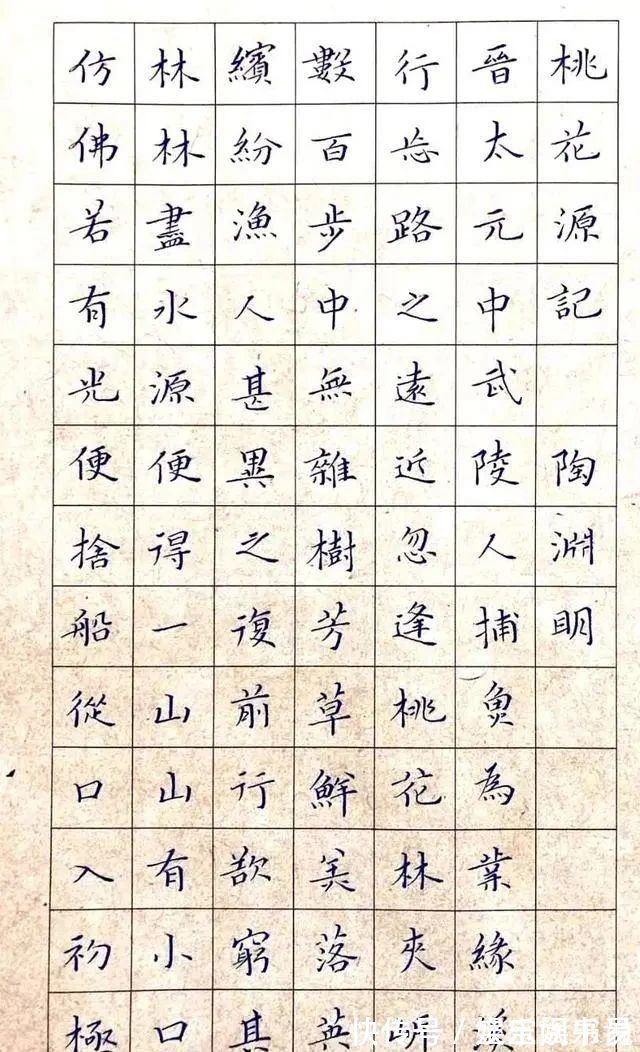 桃花源記 陶淵明
晉太元中武陵人捕魚為業緣
行忘路之遠近忽逢桃花林夾
數百步中無雜樹芳草鮮美落英
繽紛漁人甚異之復前行欲窮其
林林盡水源便得一山山有小口
仿佛若有光便捨船從口入初極
快传号 /